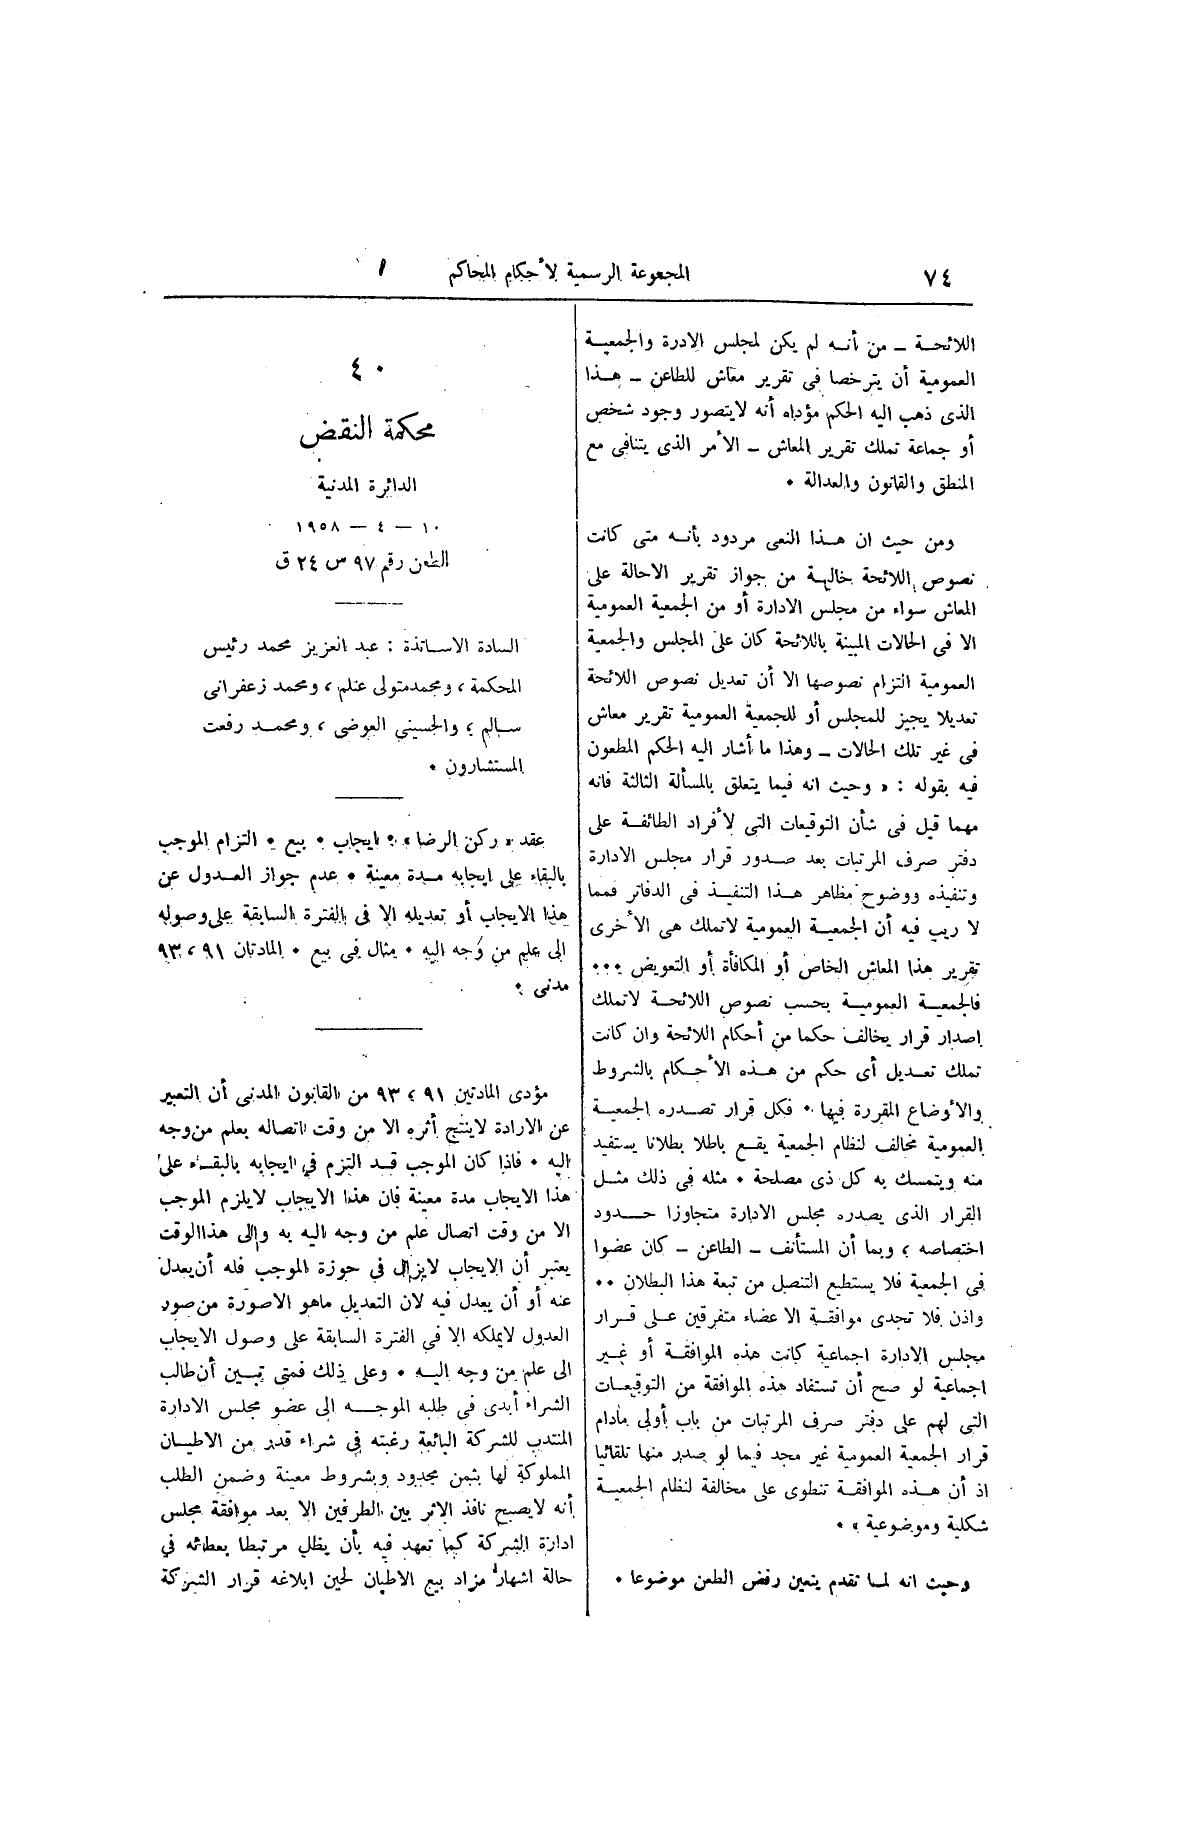 ٧٤
المجموعة الرسمية لأحكام المحاكم
اللائحـة ــ من أنـه لم يكن لمجلس الادرة والجمعيـة
العمومية أن يترخصا فى تقرير معاش للطاعن ــ هـذا
الذى ذهب اليه الحكم مؤداه أنه لايتصور وجود شخص
أو جماعة تملك تقرير المعاش ــ الأمر الذى يتنافى مع
المنطق والقانون والعدالة ٠
ومن حيث ان هـذا النعى مردود بأنـه متى كانت
نصوص اللائحة خالية من جواز تقرير الاحالة على
المعاش سواء من مجلس الادارة أو من الجمعية العمومية
الا فى الحالات المبينة باللائحة كان على المجلس والجمعية
العمومية التزام نصوصها الا أن تعديل نصوص اللائحة
تعديلا يجيز للمجلس أو للجمعية العمومية تقرير معاش
فى غير تلك الحالات ــ وهذا ما أشار اليه الحكم المطعون
فيه بقوله : « وحيث انه فيما يتعلق بالمسألة الثالثة فانه
مهما قيل فى شأن التوقيعات التى لأفراد الطائفـة على
دفتر صرف المرتبات بعد صـدور قرار مجلس الادارة
وتنفيذه ووضوح مظاهر هـذا التنفيـذ فى الدفاتر فمما
لا ريب فيه أن الجمعيـة العمومية لاتملك هى الأخرى
تقرير هذا المعاش الخاص أو المكافأة أو التعويض ٠٠٠
فالجمعيـة العموميـة بحسب نصوص اللائحـة لاتملك
اصدار قرار يخالف حكما من أحكام اللائحة وان كانت
تملك تعـديل أى حكم من هـذه الأحـكام بالشروط
والأوضاع المقررة فيها ٠ فكل قرار تصـدره الجمعيـة
العمومية مخالف لنظام الجمعية يقـع باطلا بطلانا يستفيد
منه ويتمسك به كل ذى مصلحة ٠ مثله فى ذلك مثـل
القرار الذى يصدره مجلس الادارة متجاوزا حـدود
اختصاصه ، وبما أن المستأنف ــ الطاعن ــ كان عضوا
فى الجمعية فلا يستطيع التنصل من تبعة هذا البطلان ٠٠
واذن فلا تجدى موافقـة الاعضاء متفرقين عـلى قـرار
مجلس الادارة اجماعية كانت هذه الموافقـة أو غـير
اجماعية لو صح أن تستفاد هذه الموافقة من التوقيعـات
التى لهم على دفتر صرف المرتبات من باب أولى مادام
قرار الجمعية العمومية غير مجد فيما لو صدر منها تلقائيا
اذ أن هـذه الموافقـة تنطوى على مخالفة لنظام الجمعيـة
شكلية وموضوعية » ٠
وحيث انه لمـا تقدم يتعين رفض الطعن موضوعا ٠
٤٠
محكمة النقض
الدائرة المدنية
١٠ ــ ٤ ــ ١٩٥٨
الطعن رقم ٩٧ س ٢٤ ق
السادة الاسـاتذة : عبد العزيز محمد رئيس
المحكمة ، ومحمد متولى عتلم ، ومحمد زعفرانى
سـالم ، والحسينى العوضى ، ومحمـد رفعت
المستشارون ٠
عقد « ركن الرضا » ٠ ايجاب ٠ بيع ٠ التزام الموجب
بالبقاء على ايجابه مـدة معينة ٠ عدم جواز العـدول عن
هذا الايجاب أو تعديله الا فى الفترة السابقة على وصوله
الى علم من وجه اليه ٠ مثال فى بيع ٠ المادتان ٩١ ، ٩٣
مدنى ٠
مؤدى المادتين ٩١ ، ٩٣ من القانون المدنى أن التعبير
عن الارادة لاينتج أثره الا من وقت اتصاله بعلم من وجه
اليه ٠ فاذا كان الموجب قـد التزم فى ايجابه بالبقـاء على
هذا الايجاب مدة معينة فان هذا الايجاب لايلزم الموجب
الا من وقت اتصال علم من وجه اليه به والى هذا الوقت
يعتبر أن الايجاب لايزال فى حوزة الموجب فله أن يعدل
عنه أو أن يعدل فيه لان التعديل ماهو الاصورة من صور
العدول لايملكه الا فى الفترة السابقة على وصول الايجاب
الى علم من وجه اليـه ٠ وعلى ذلك فمتى تبـين أن طالب
الشراء أبدى فى طلبه الموجـه الى عضو مجلس الادارة
المنتدب للشركة البائعة رغبته فى شراء قدر من الاطيـان
المملوكة لها بثمن محدود وبشروط معينة وضمن الطلب
أنه لايصبح نافذ الاثر بين الطرفين الا بعد موافقة مجلس
ادارة الشركة كما تعهد فيه بأن يظل مرتبطا بعطائه فى
حالة اشهار مزاد بيع الاطيان لحين ابلاغه قرار الشركة